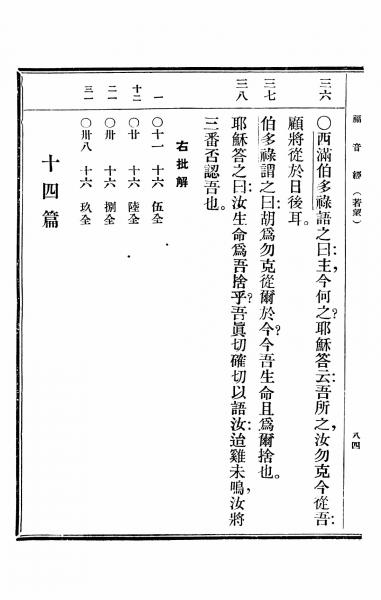 福音經（若望）
八四
三六
〇西滿伯多祿語之曰：主，今何之？耶穌答云：吾所之，汝勿克今從吾：
顧將從於日後耳。
三七
伯多祿謂之曰：胡爲勿克從爾於今？今吾生命且爲爾捨也。
三八
耶穌答之曰：汝生命爲吾捨乎？吾眞切確切以語汝：迨雞未鳴，汝將
三番否認吾也。
右批解
一 〇十一 十六 伍全
十二 〇廿 十六 陸全
二一 〇卅 十六 捌全
三一 〇卅八 十六 玖全
十四篇